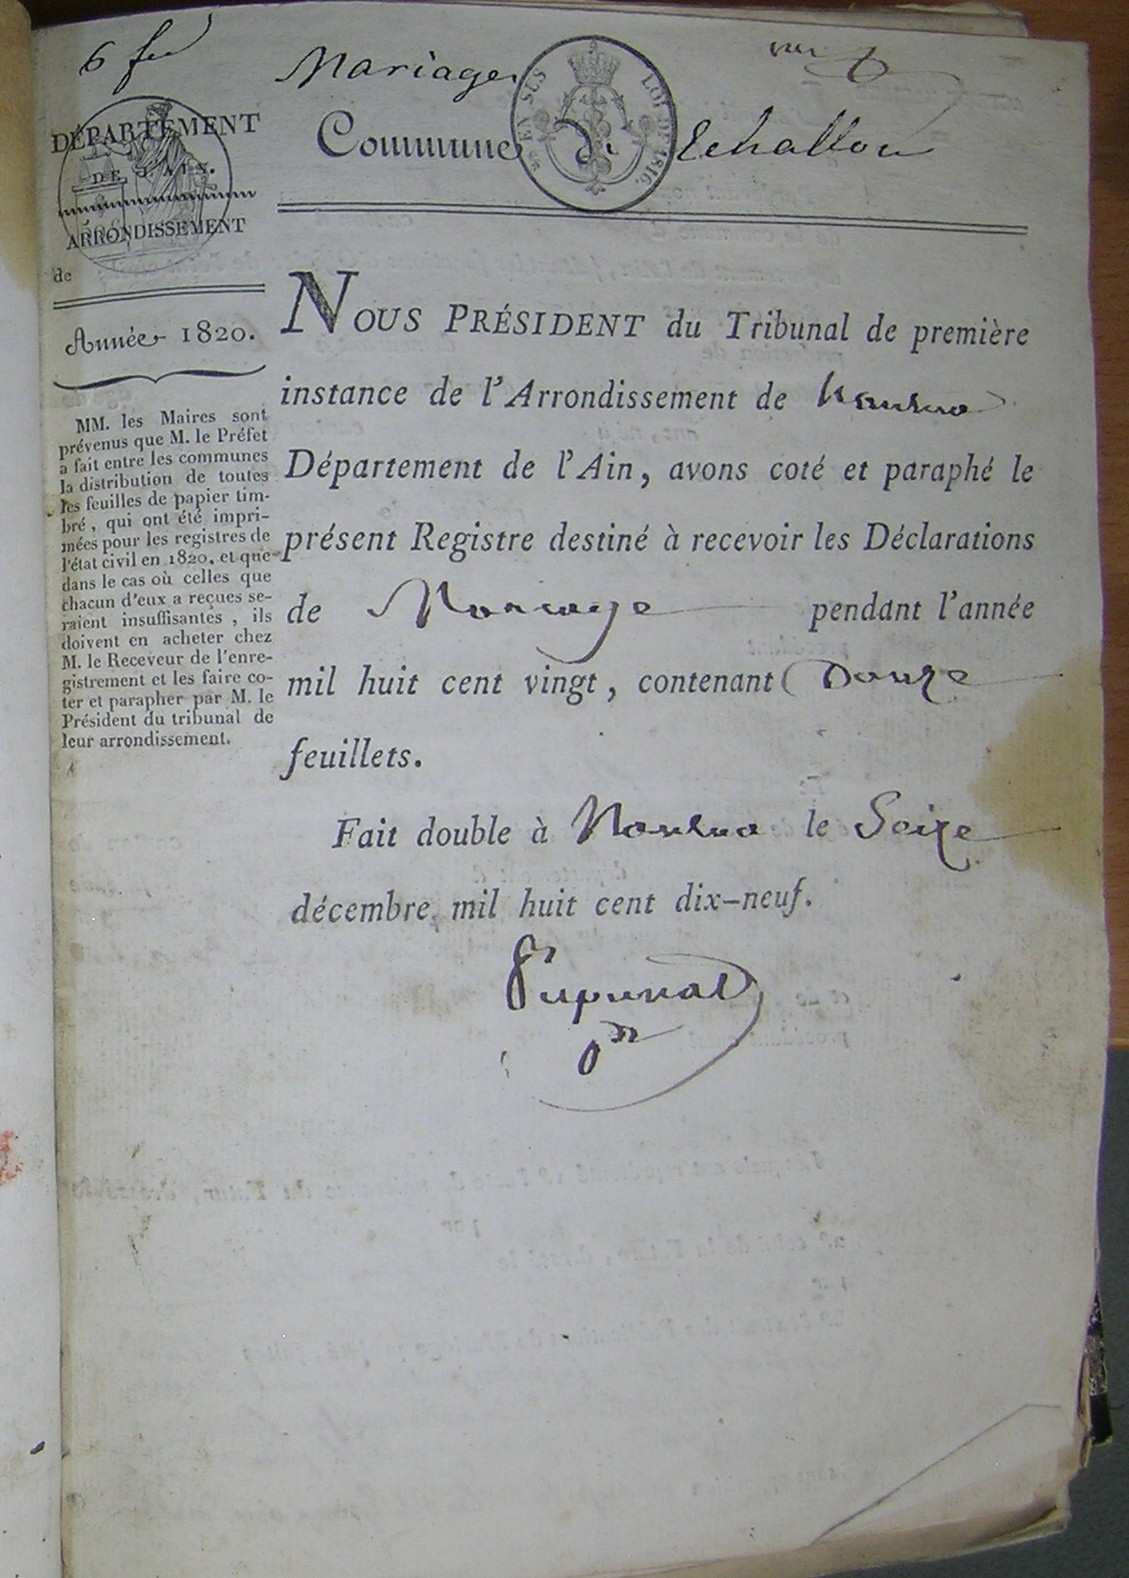 6 feu
Mariage
EN SUS LOI DE 1816.
Commune d' Echallon
DÉPARTEMENT
DE L'AIN.
ARRONDISSEMENT
de
Année 1820.
MM. les Maires sont
prévenus que M. le Préfet
a fait entre les communes
la distribution de toutes
les feuilles de papier tim-
bré, qui ont été impri-
mées pour les registres de
l'état civil en 1820, et que
dans le cas où celles que
chacun d'eux a reçues se-
raient insuffisantes, ils
doivent en acheter chez
M. le Receveur de l'enre-
gistrement et les faire co-
ter et parapher par M. le
Président du tribunal de
leur arrondissement.
NOUS PRÉSIDENT du Tribunal de première
instance de l'Arrondissement de Nantua
Département de l'Ain, avons coté et paraphé le
présent Registre destiné à recevoir les Déclarations
de Mariage pendant l'année
mil huit cent vingt, contenant Douze
feuillets.
Fait double à Nantua le Seize
décembre mil huit cent dix-neuf.